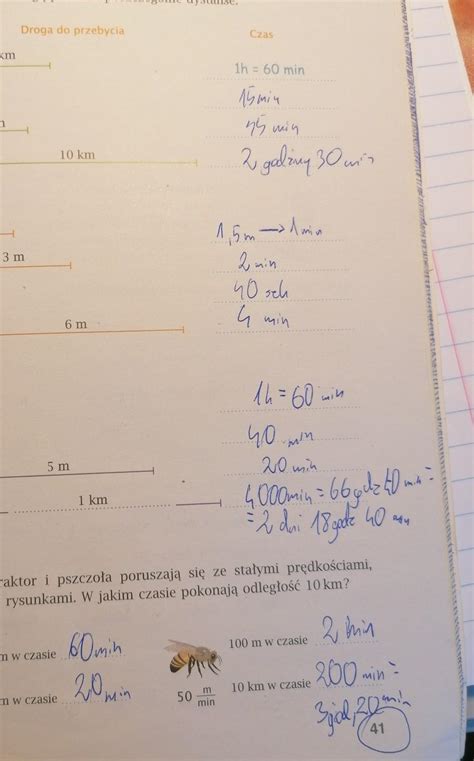 dystanse.
Droga do przebycia Czas
km
1h = 60 min
15 min
45 min
10 km 2 godziny 30 min
1,5m → 1 min
3 m
2 min
40 sek
6 m 4 min
1h = 60 min
40 min
5 m 20 min
1 km 4000min = 66 godz 40 min =
= 2 dni 18 godz 40 min
raktor i pszczoła poruszają się ze stałymi prędkościami,
rysunkami. W jakim czasie pokonają odległość 10 km?
m w czasie 60 min 100 m w czasie 2 min
m w czasie 20 min 50 m/min 10 km w czasie 200 min =
3 god, 20 min
41